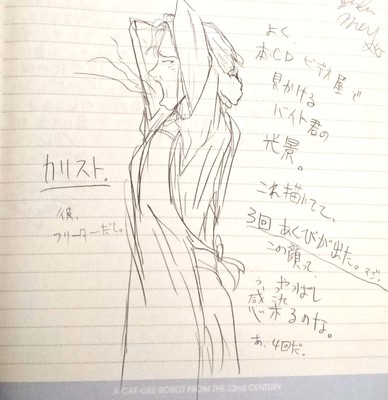 よく、
本CD ビデオ屋で
見かける
バイト君の
光景。
これ描いてて、
3回あくびが出た。マジ
この顔って、
やっぱし
感染るのな。
あ、4回だ。
カリスト.
彼、
フリーターだし。
A CAT-LIKE ROBOT FROM THE 22nd CENTURY